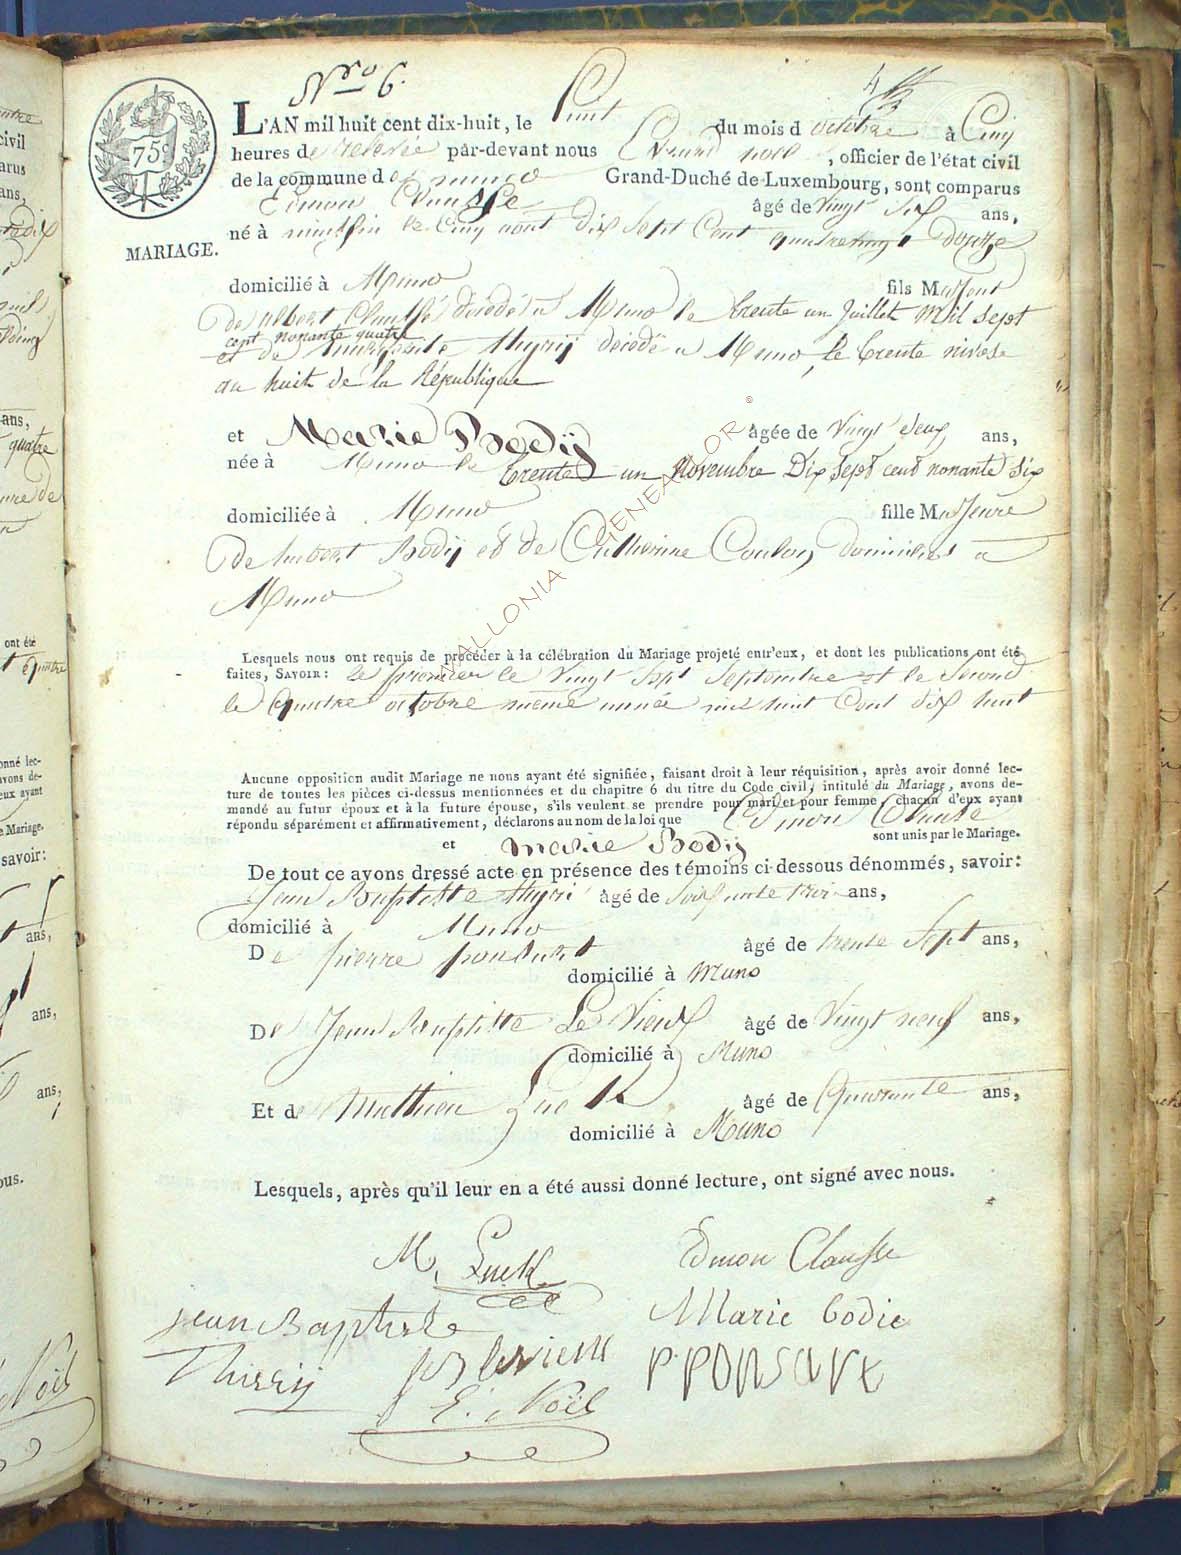 Nro 6.
75c
L'AN mil huit cent dix-huit, le huit du mois d octobre à Cinq
heures de relevée par-devant nous Noël, officier de l'état civil
de la commune de muno Grand-Duché de Luxembourg, sont comparus
Edmon Clausse âgé de Vingt six ans,
MARIAGE.
né à le Cinq aout dix sept Cent quatrevingt Douze
domicilié à Muno fils Majeur
de albert Clausse décédé a Muno le trente un Juillet mil sept
cent nonante quatre
et de margerite thyrij décédé a Muno, le trente nivose
au huit de la République
et Marie Bodÿ âgée de Vingt deux ans,
née à Muno le trente un Novembre Dix sept cent nonante six
domiciliée à Muno fille Majeure
de hubert Bodÿ et de Catherine Coulon domiciliés a
Muno
Lesquels nous ont requis de procéder à la célébration du Mariage projeté entr'eux, et dont les publications ont été
faites, SAVOIR: le premier le Vingt Sept Septembre et le Second
le Quatre octobre même année mil huit Cent dix huit
Aucune opposition audit Mariage ne nous ayant été signifiée, faisant droit à leur réquisition, après avoir donné lec-
ture de toutes les pièces ci-dessus mentionnées et du chapitre 6 du titre du Code civil, intitulé du Mariage, avons de-
mandé au futur époux et à la future épouse, s'ils veulent se prendre pour mari et pour femme, chacun d'eux ayant
répondu séparément et affirmativement, déclarons au nom de la loi que Edmon Clausse
et marie Bodÿ sont unis par le Mariage.
De tout ce ayons dressé acte en présence des témoins ci-dessous dénommés, savoir:
Jean Baptiste thyri âgé de soixante troi ans,
domicilié à Muno
De pierre ponsart âgé de trente Sept ans,
domicilié à Muno
De Jean Baptiste Le Vieux âgé de Vingt neuf ans,
domicilié à Muno
Et de Mathieu Guek âgé de Quarante ans,
domicilié à Muno
Lesquels, après qu'il leur en a été aussi donné lecture, ont signé avec nous.
M. Guek Edmon Clausse
Jean Baptiste Marie bodie
Thirrij levieux P PONSART
E. Noël
© WALLONIA GENEALOR